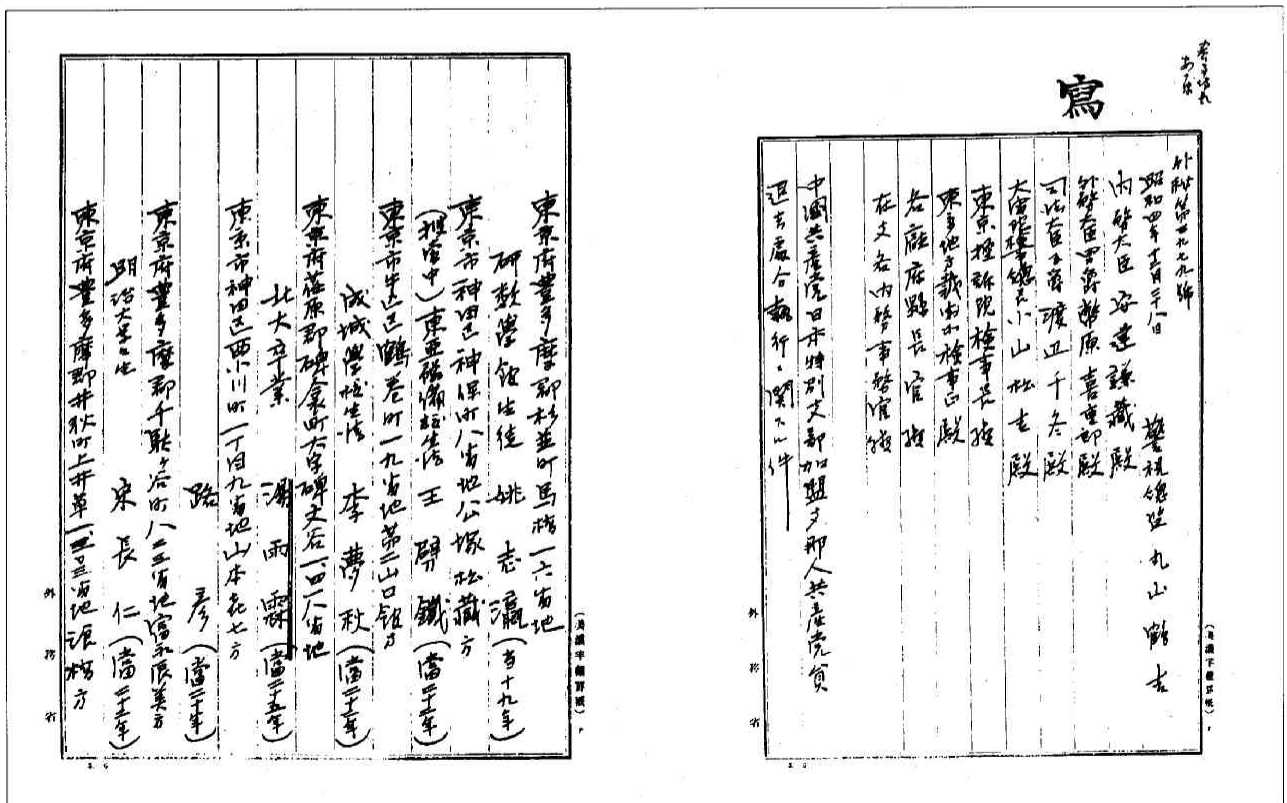 寫
外秘第四九七九號
昭和四年十二月二十八日
警視總監 丸山鶴吉
內務大臣 安達謙藏殿
外務大臣男爵幣原喜重郎殿
司法大臣子爵渡辺千冬殿
大審院檢事總長小山松吉殿
東京控訴院檢事長殿
東京地方裁判所檢事正殿
各廳府縣長官殿
在支各內務事務官殿
中國共產党日本特別支部加盟支那人共產党員
退去處分執行ニ関スル件
(器濾字細罫紙)
外務省
東京府豊多摩郡杉並町馬橋一六番地
研数學館生徒 姚志瀛(当十九年)
東京市神田區神保町八番地公塚松藏方
王 學鐵(當二十一年)
東京市牛込區鶴巻町一九番地第二山口館方
成城學校生徒 李夢秋(當二十一年)
東京府荏原郡碑衾町大字碑文谷一、四一八番地
北大卒業 湯雨霖(當二十五年)
東京市神田區西小川町一丁目九番地山本喜七方
路 彦(當二十年)
東京府豊多摩郡千駄ヶ谷町八二三番地富永辰美方
明治大學々生 宋長仁(當二十二年)
東京府豊多摩郡井荻町上井草
外務省